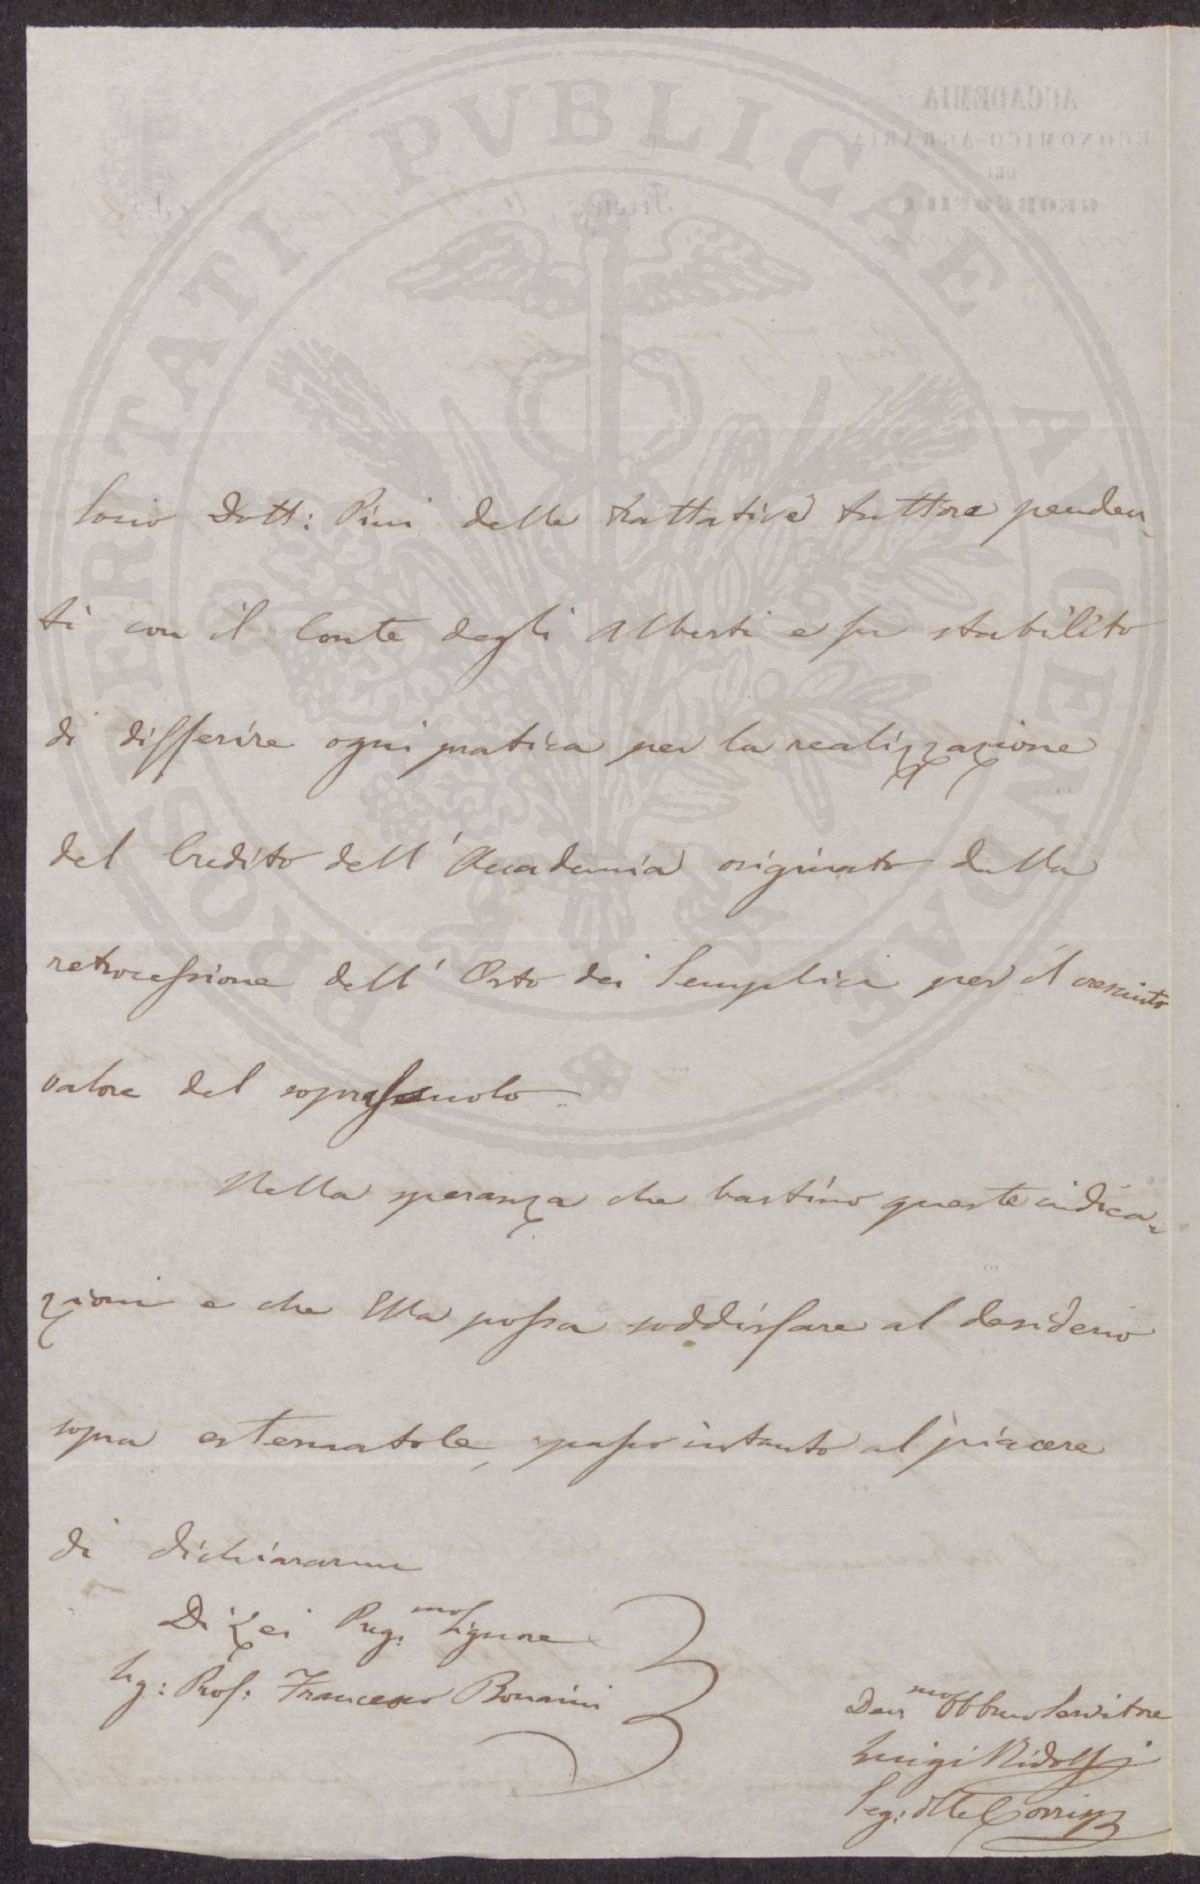 PROSPERITATI PVBLICAE AVGENDAE
ACCADEMIA
ECONOMICO-AGRARIA
DEI
GEORGOFILI
Socio Dott: Pini delle trattative tuttora penden-
ti con il Conte degli Alberti e fu stabilito
di differire ogni pratica per la realizzazione
del Credito dell'Accademia originato dalla
retrocessione dell'Orto dei Semplici per il cresciuto
valore del soprassuolo
Nella speranza che bastino queste indica-
zioni e che Ella possa soddisfare al desiderio
sopra esternatole, passo intanto al piacere
di dichiararmi
Di Lei Preg.mo Signore
Sig: Prof: Francesco Bonaini
Dev.mo Obbmo Servitore
Luigi Ridolfi
Seg: delle Corrisp